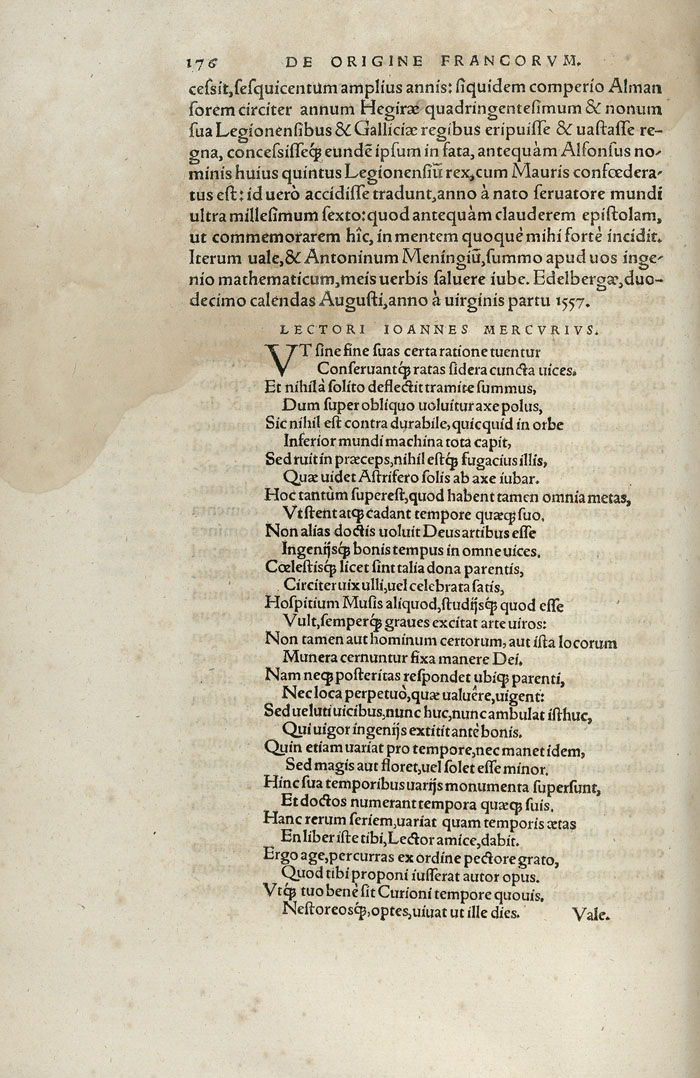 176 DE ORIGINE FRANCORVM.
ceſsit, ſeſquicentum amplius annis: ſiquidem comperio Alman
ſorem circiter annum Hegiræ quadringenteſimum & nonum
ſua Legionenſibus & Galliciæ regibus eripuiſſe & uaſtaſſe re-
gna, conceſsiſſeq́ꝫ eundē ipſum in fata, antequàm Alfonſus no-
minis huius quintus Legionenſiū rex, cum Mauris confœdera-
tus eſt: id uerò accidiſſe tradunt, anno à nato ſeruatore mundi
ultra milleſimum ſexto: quod antequàm clauderem epiſtolam,
ut commemorarem hîc, in mentem quoquè mihi fortè incidit.
Iterum uale, & Antoninum Meningiū, ſummo apud uos inge-
nio mathematicum, meis uerbis ſaluere iube. Edelbergæ, duo-
decimo calendas Auguſti, anno à uirginis partu 1557.
LECTORI IOANNES MERCVRIVS.
VT ſine fine ſuas certa ratione tuentur
Conſeruantq́ꝫ ratas ſidera cuncta uices.
Et nihil à ſolito deflectit tramite ſummus,
Dum ſuper obliquo uoluitur axe polus,
Sic nihil eſt contra durabile, quicquid in orbe
Inferior mundi machina tota capit,
Sed ruit in præceps, nihil eſtq́ꝫ fugacius illis,
Quæ uidet Aſtrifero ſolis ab axe iubar.
Hoc tantùm ſupereſt, quod habent tamen omnia metas,
Vt ſtent atqꝫ cadant tempore quæqꝫ ſuo.
Non alias doctis uoluit Deus artibus eſſe
Ingenijsq́ꝫ bonis tempus in omne uices.
Cœleſtisq́ꝫ licet ſint talia dona parentis,
Circiter uix ulli, uel celebrata ſatis,
Hoſpitium Muſis aliquod, ſtudijsq́ꝫ quod eſſe
Vult, ſemperq́ꝫ graues excitat arte uiros:
Non tamen aut hominum certorum, aut iſta locorum
Munera cernuntur fixa manere Dei.
Nam neqꝫ poſteritas reſpondet ubiqꝫ parenti,
Nec loca perpetuò, quæ ualuêre, uigent:
Sed ueluti uicibus, nunc huc, nunc ambulat iſthuc,
Qui uigor ingenijs extitit antè bonis.
Quin etiam uariat pro tempore, nec manet idem,
Sed magis aut floret, uel ſolet eſſe minor.
Hinc ſua temporibus uarijs monumenta ſuperſunt,
Et doctos numerant tempora quæqꝫ ſuis.
Hanc rerum ſeriem, uariat quam temporis ætas
En liber iſte tibi, Lector amice, dabit.
Ergo age, percurras ex ordine pectore grato,
Quod tibi proponi iuſſerat autor opus.
Vtq́ꝫ tuo benè ſit Curioni tempore quouis,
Neſtoreosq́ꝫ, optes, uiuat ut ille dies. Vale.